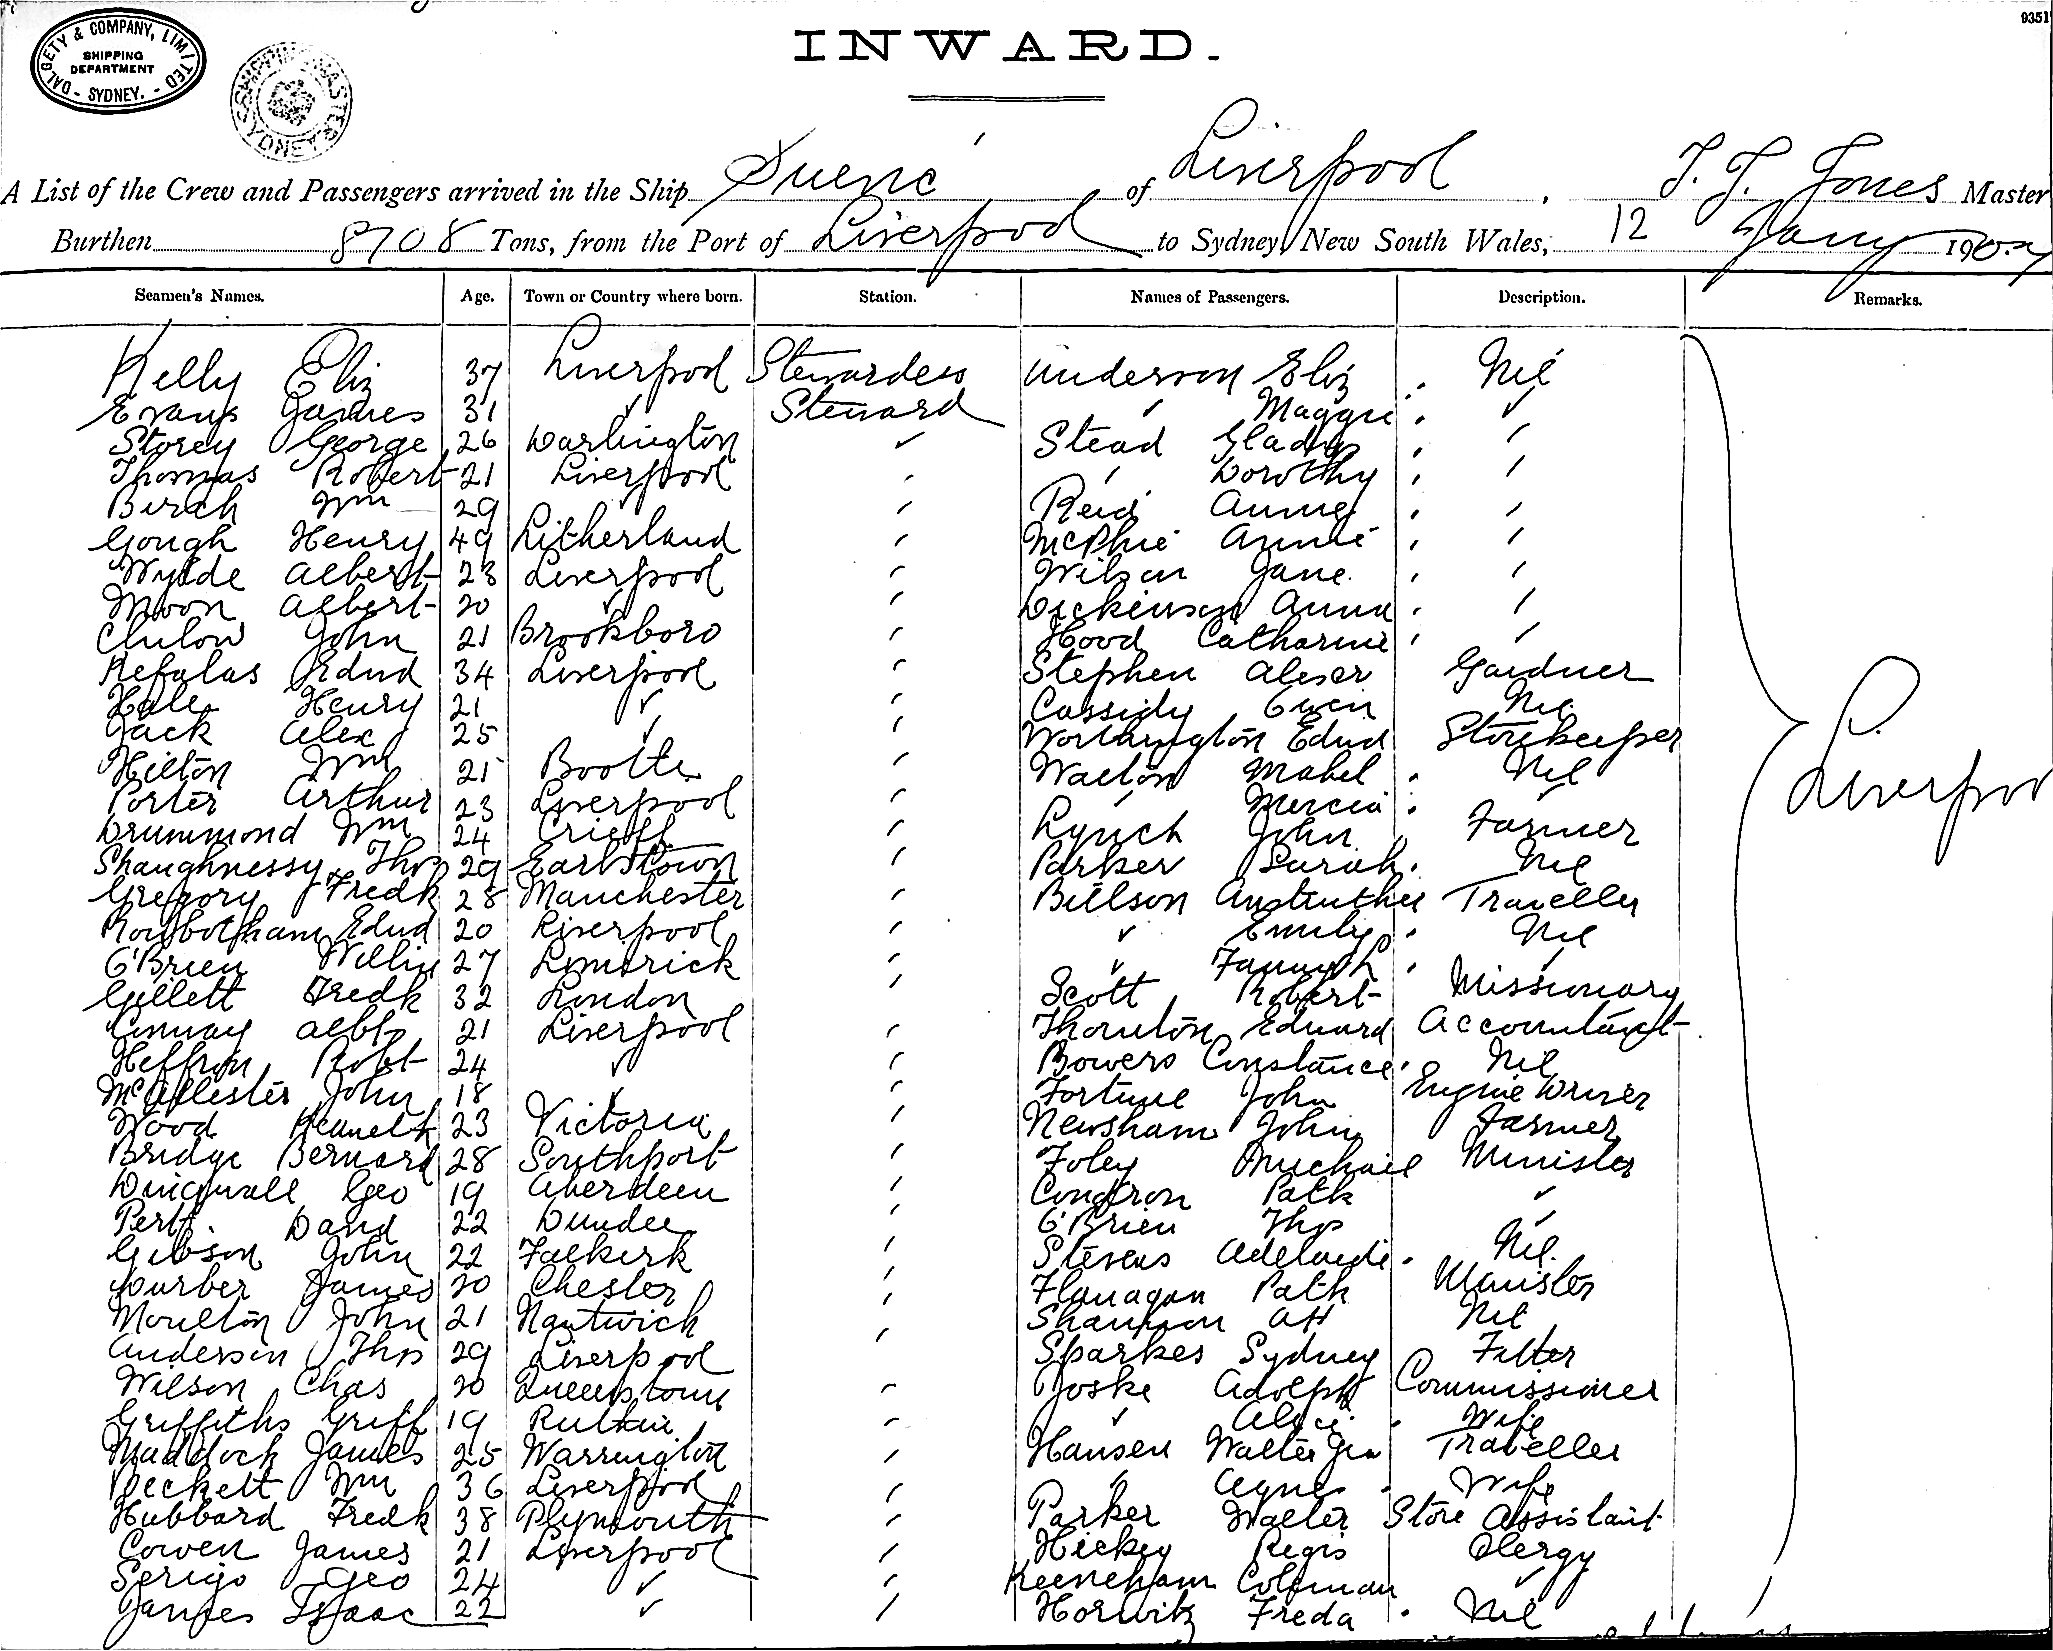 9351
DALGETY & COMPANY, LIMITED
SHIPPING
DEPARTMENT
SYDNEY.
SHIPPING MASTER SYDNEY
INWARD.
A List of the Crew and Passengers arrived in the Ship Suevic of Liverpool, T. J. Jones Master
Burthen 8708 Tons, from the Port of Liverpool to Sydney, New South Wales, 12 Jany 1907
Seamen's Names. Age. Town or Country where born. Station. Names of Passengers. Description. Remarks.
Kelly Eliz 37 Liverpool Stewardess Anderson Eliz . Nil
Evans James 31 ✓ Steward ✓ Maggie . ✓
Storey George 26 Darlington ✓ Stead Gladys . ✓
Thomas Robert 21 Liverpool ✓ ✓ Dorothy . ✓
Birch Wm 29 ✓ Reid Annie . ✓
Gough Henry 49 Litherland ✓ McPhie Annie . ✓
Wylde Albert 23 Liverpool ✓ Wilson Jane . ✓
Moon Albert 20 ✓ ✓ Dickinson Anna . ✓
Clulow John 21 Brookboro ✓ Hood Catharine . ✓
Kefalas Edwd 34 Liverpool ✓ Stephen Gardner
Hale Henry 21 ✓ ✓ Cassidy Owen Nil
Jack Alex 25 ✓ ✓ Worthington Edwd Storekeeper
Hilton Wm 21 Bootle ✓ Walton Mabel . Nil
Porter Arthur 23 Liverpool ✓ ✓ Mercia . ✓
Liverpool
Drummond Wm 24 Crieff ✓ Lynch John Farmer
Shaughnessy Thos 29 Earlstown ✓ Parker Sarah . Nil
Gregory Fredk 28 Manchester ✓ Billson Anstruther Traveller
Rowbotham Edwd 20 Liverpool ✓ ✓ Emily . Nil
O'Brien Willie 27 Limerick ✓ ✓ Fanny . ✓
Gillett Fredk 32 London ✓ Scott Robert Missionary
Conway Albt 21 Liverpool ✓ Thornton Edward Accountant
Heffron Robt 24 ✓ ✓ Bowers Constance . Nil
McAllester John 18 ✓ ✓ Fortune John Engine Driver
Wood Kenneth 23 Victoria ✓ Newsham John Farmer
Bridge Bernard 28 Southport ✓ Foley Michael Minister
Dingwall Geo 19 Aberdeen ✓ Condron Patk ✓
Pert David 22 Dundee ✓ O'Brien Thos ✓
Gibson John 22 Falkirk ✓ Stevens Adelaide . Nil
James 20 Chester ✓ Flanagan Patk Minister
Moulton John 21 Nantwich ✓ Shannon Nil
Anderson Thos 29 Liverpool ✓ Sparkes Sydney Fitter
Wilson Chas 20 Queenstown ✓ Joske Adolph Commissioner
Griffiths Griff 19 Ruthin ✓ ✓ Alice . Wife
Maddock James 25 Warrington ✓ Hansen Walter Geo Traveller
Beckett Wm 36 Liverpool ✓ ✓ Agnes . Wife
Hubbard Fredk 38 Plymouth ✓ Parker Walter Store Assistant
Cowen James 21 Liverpool ✓ Hickey Regis Clergy
Serigo Geo 24 ✓ ✓ Keeneham Colman ✓
Isaac 22 ✓ ✓ Horwitz Freda . Nil